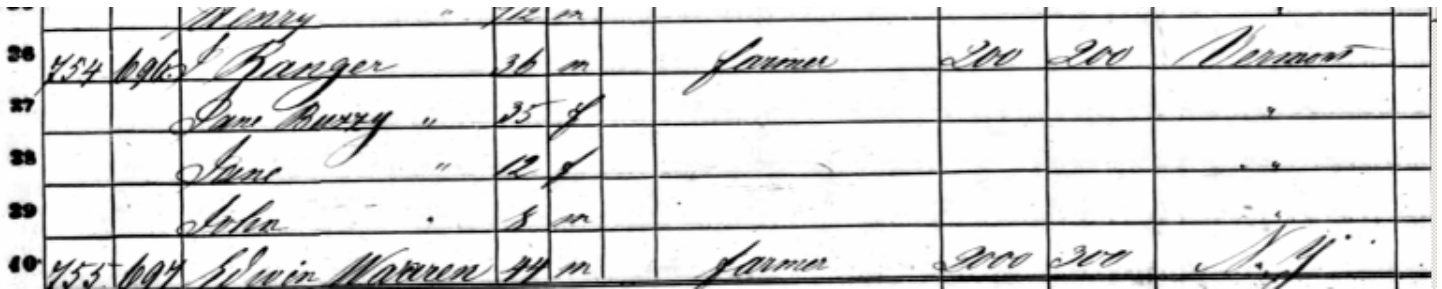 Henry " 7/12 m
36 754 696 J Ranger 36 m farmer 200 200 Vermont
37 Jane Buzzy " 35 f "
38 Jane " 12 f "
39 John " 8 m "
40 755 697 Edwin Warren 44 m farmer 2000 300 N.Y.